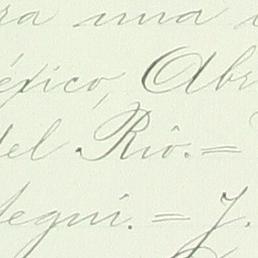 ra una
éxico, Abr
del Rio.=
legui.= J.